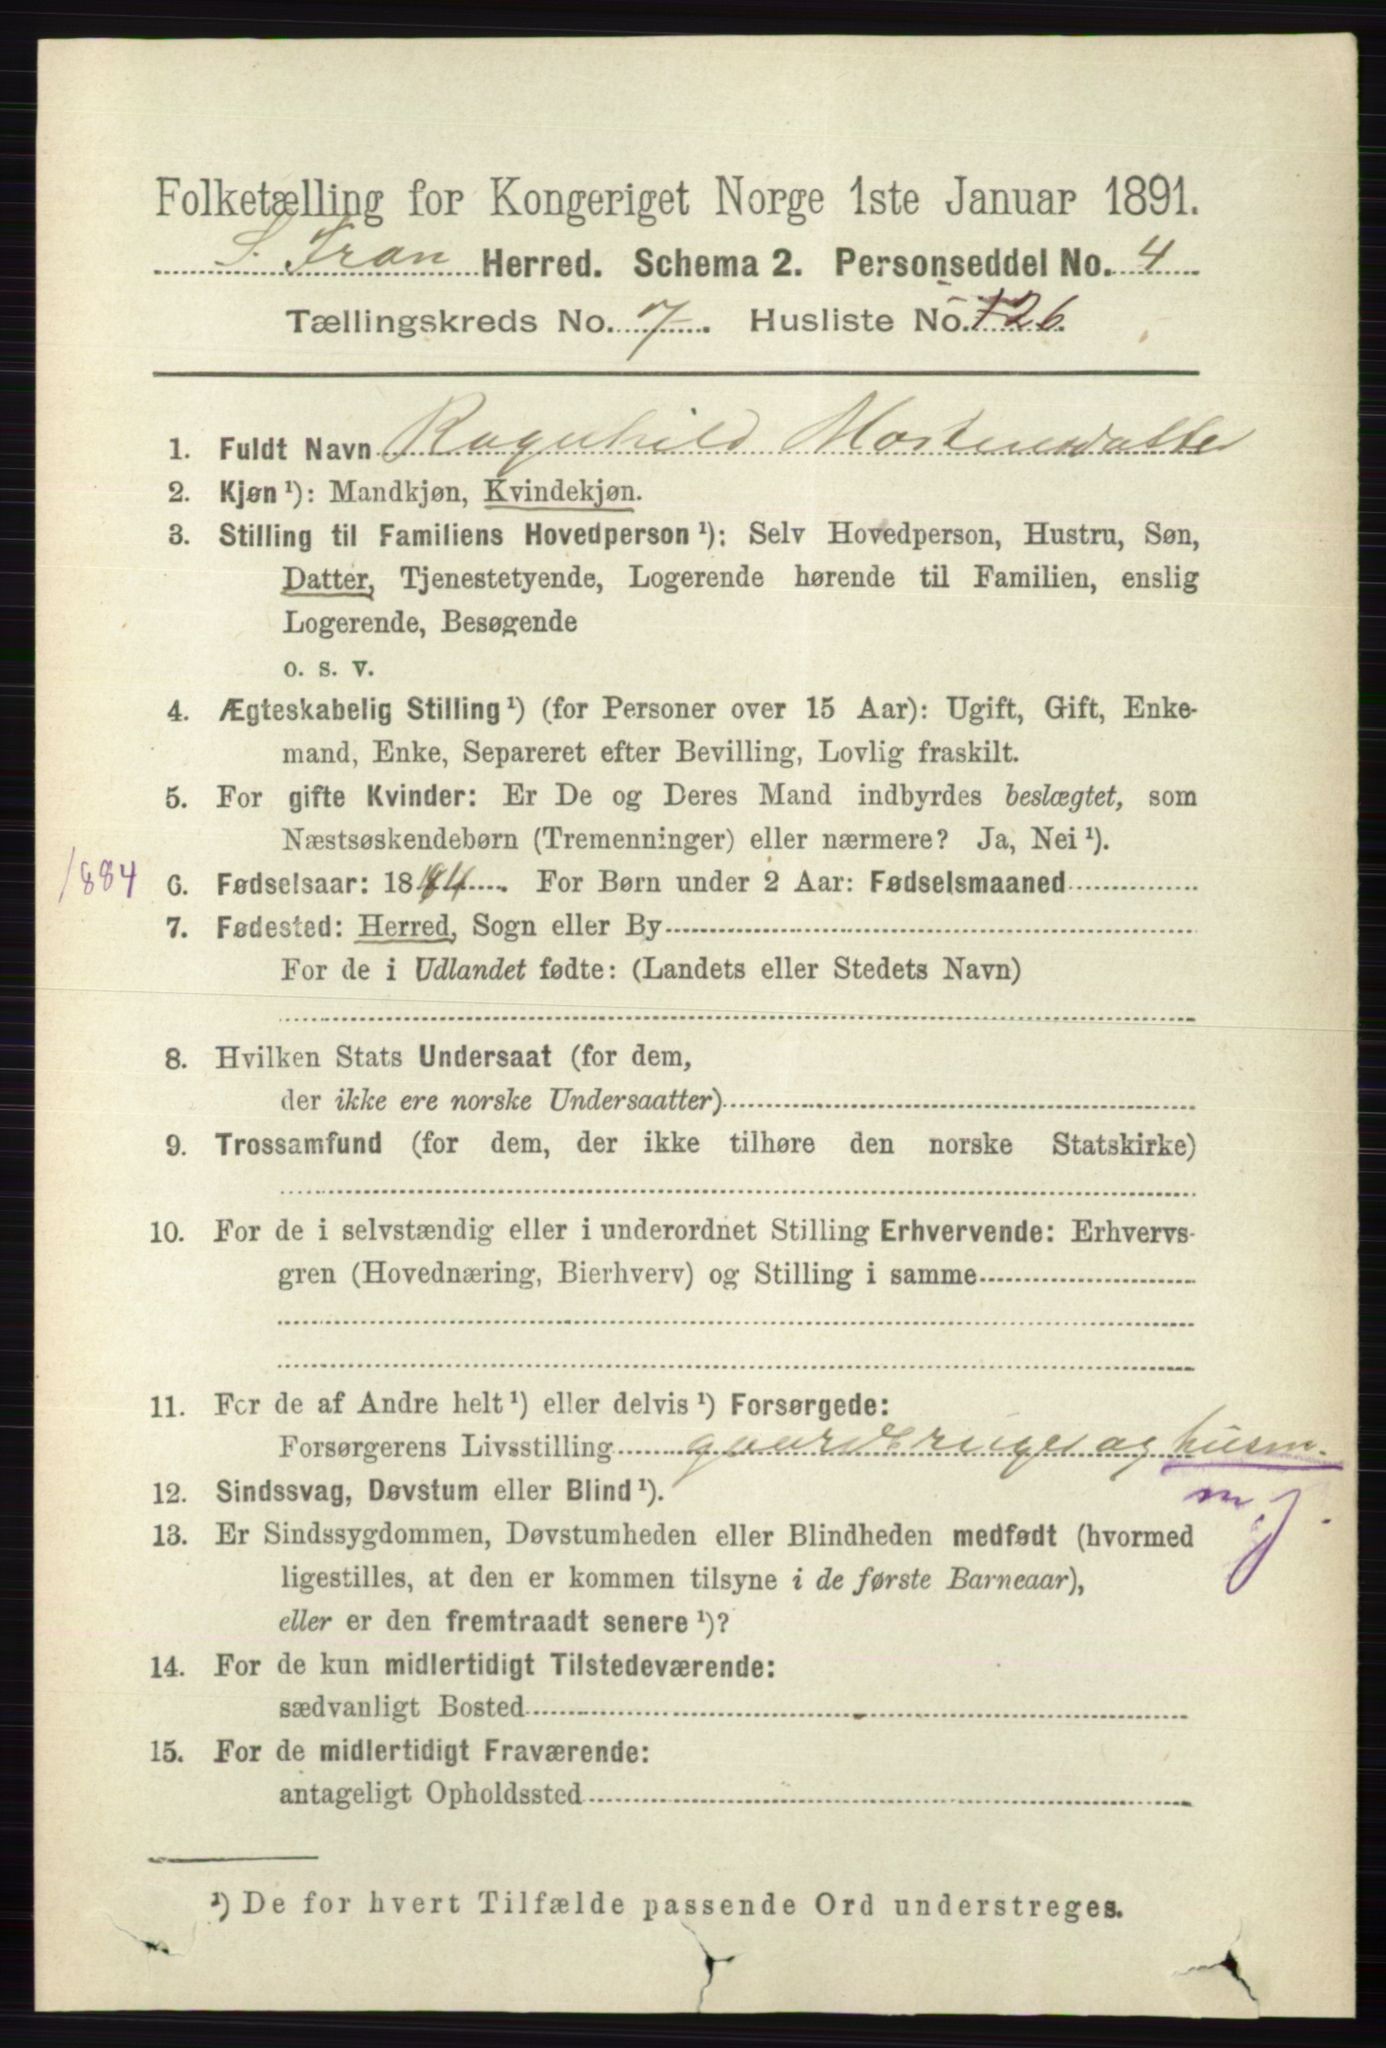 Folketælling for Kongeriget Norge 1ste Januar 1891.
S. Fron Herred. Schema 2. Personseddel No. 4
Tællingskreds No. 7. Husliste No. 126.
1. Fuldt Navn Ragnhild Mortensdatter
2. Kjøn ¹): Mandkjøn, Kvindekjøn.
3. Stilling til Familiens Hovedperson ¹): Selv Hovedperson, Hustru, Søn,
Datter, Tjenestetyende, Logerende hørende til Familien, enslig
Logerende, Besøgende
o. s. v.
4. Ægteskabelig Stilling ¹) (for Personer over 15 Aar): Ugift, Gift, Enke-
mand, Enke, Separeret efter Bevilling, Lovlig fraskilt.
5. For gifte Kvinder: Er De og Deres Mand indbyrdes beslægtet, som
Næstsøskendebørn (Tremenninger) eller nærmere? Ja, Nei ¹).
1884 6. Fødselsaar: 1884. For Børn under 2 Aar: Fødselsmaaned
7. Fødested: Herred, Sogn eller By
For de i Udlandet fødte: (Landets eller Stedets Navn)
8. Hvilken Stats Undersaat (for dem,
der ikke ere norske Undersaatter)
9. Trossamfund (for dem, der ikke tilhøre den norske Statskirke)
10. For de i selvstændig eller i underordnet Stilling Erhvervende: Erhvervs-
gren (Hovednæring, Bierhverv) og Stilling i samme
11. For de af Andre helt ¹) eller delvis ¹) Forsørgede:
Forsørgerens Livsstilling og husm.
m. j.
12. Sindssvag, Døvstum eller Blind ¹).
13. Er Sindssygdommen, Døvstumheden eller Blindheden medfødt (hvormed
ligestilles, at den er kommen tilsyne i de første Barneaar),
eller er den fremtraadt senere ¹)?
14. For de kun midlertidigt Tilstedeværende:
sædvanligt Bosted
15. For de midlertidigt Fraværende:
antageligt Opholdssted
¹) De for hvert Tilfælde passende Ord understreges.